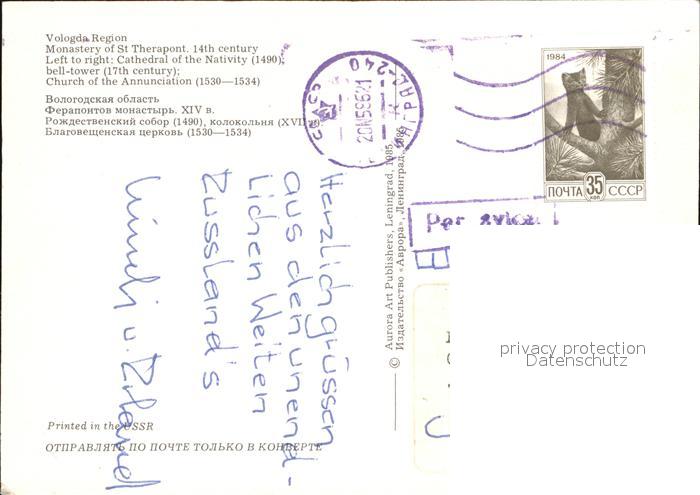 Vologda Region
Monastery of St Therapont. 14th century
Left to right: Cathedral of the Nativity (1490);
bell-tower (17th century);
Church of the Annunciation (1530—1534)
Вологодская область
Ферапонтов монастырь. XIV в.
Рождественский собор (1490), колокольня (XVII в.)
Благовещенская церковь (1530—1534)
1984
ПОЧТА 35 КОП СССР
Par avion
Herzlich grüssen
aus den unend-
lichen Weiten
Russland's
u.
© Aurora Art Publishers, Leningrad, 1985
Издательство «Аврора», Ленинград, 1985
privacy protection
Datenschutz
Printed in the USSR
ОТПРАВЛЯТЬ ПО ПОЧТЕ ТОЛЬКО В КОНВЕРТЕ